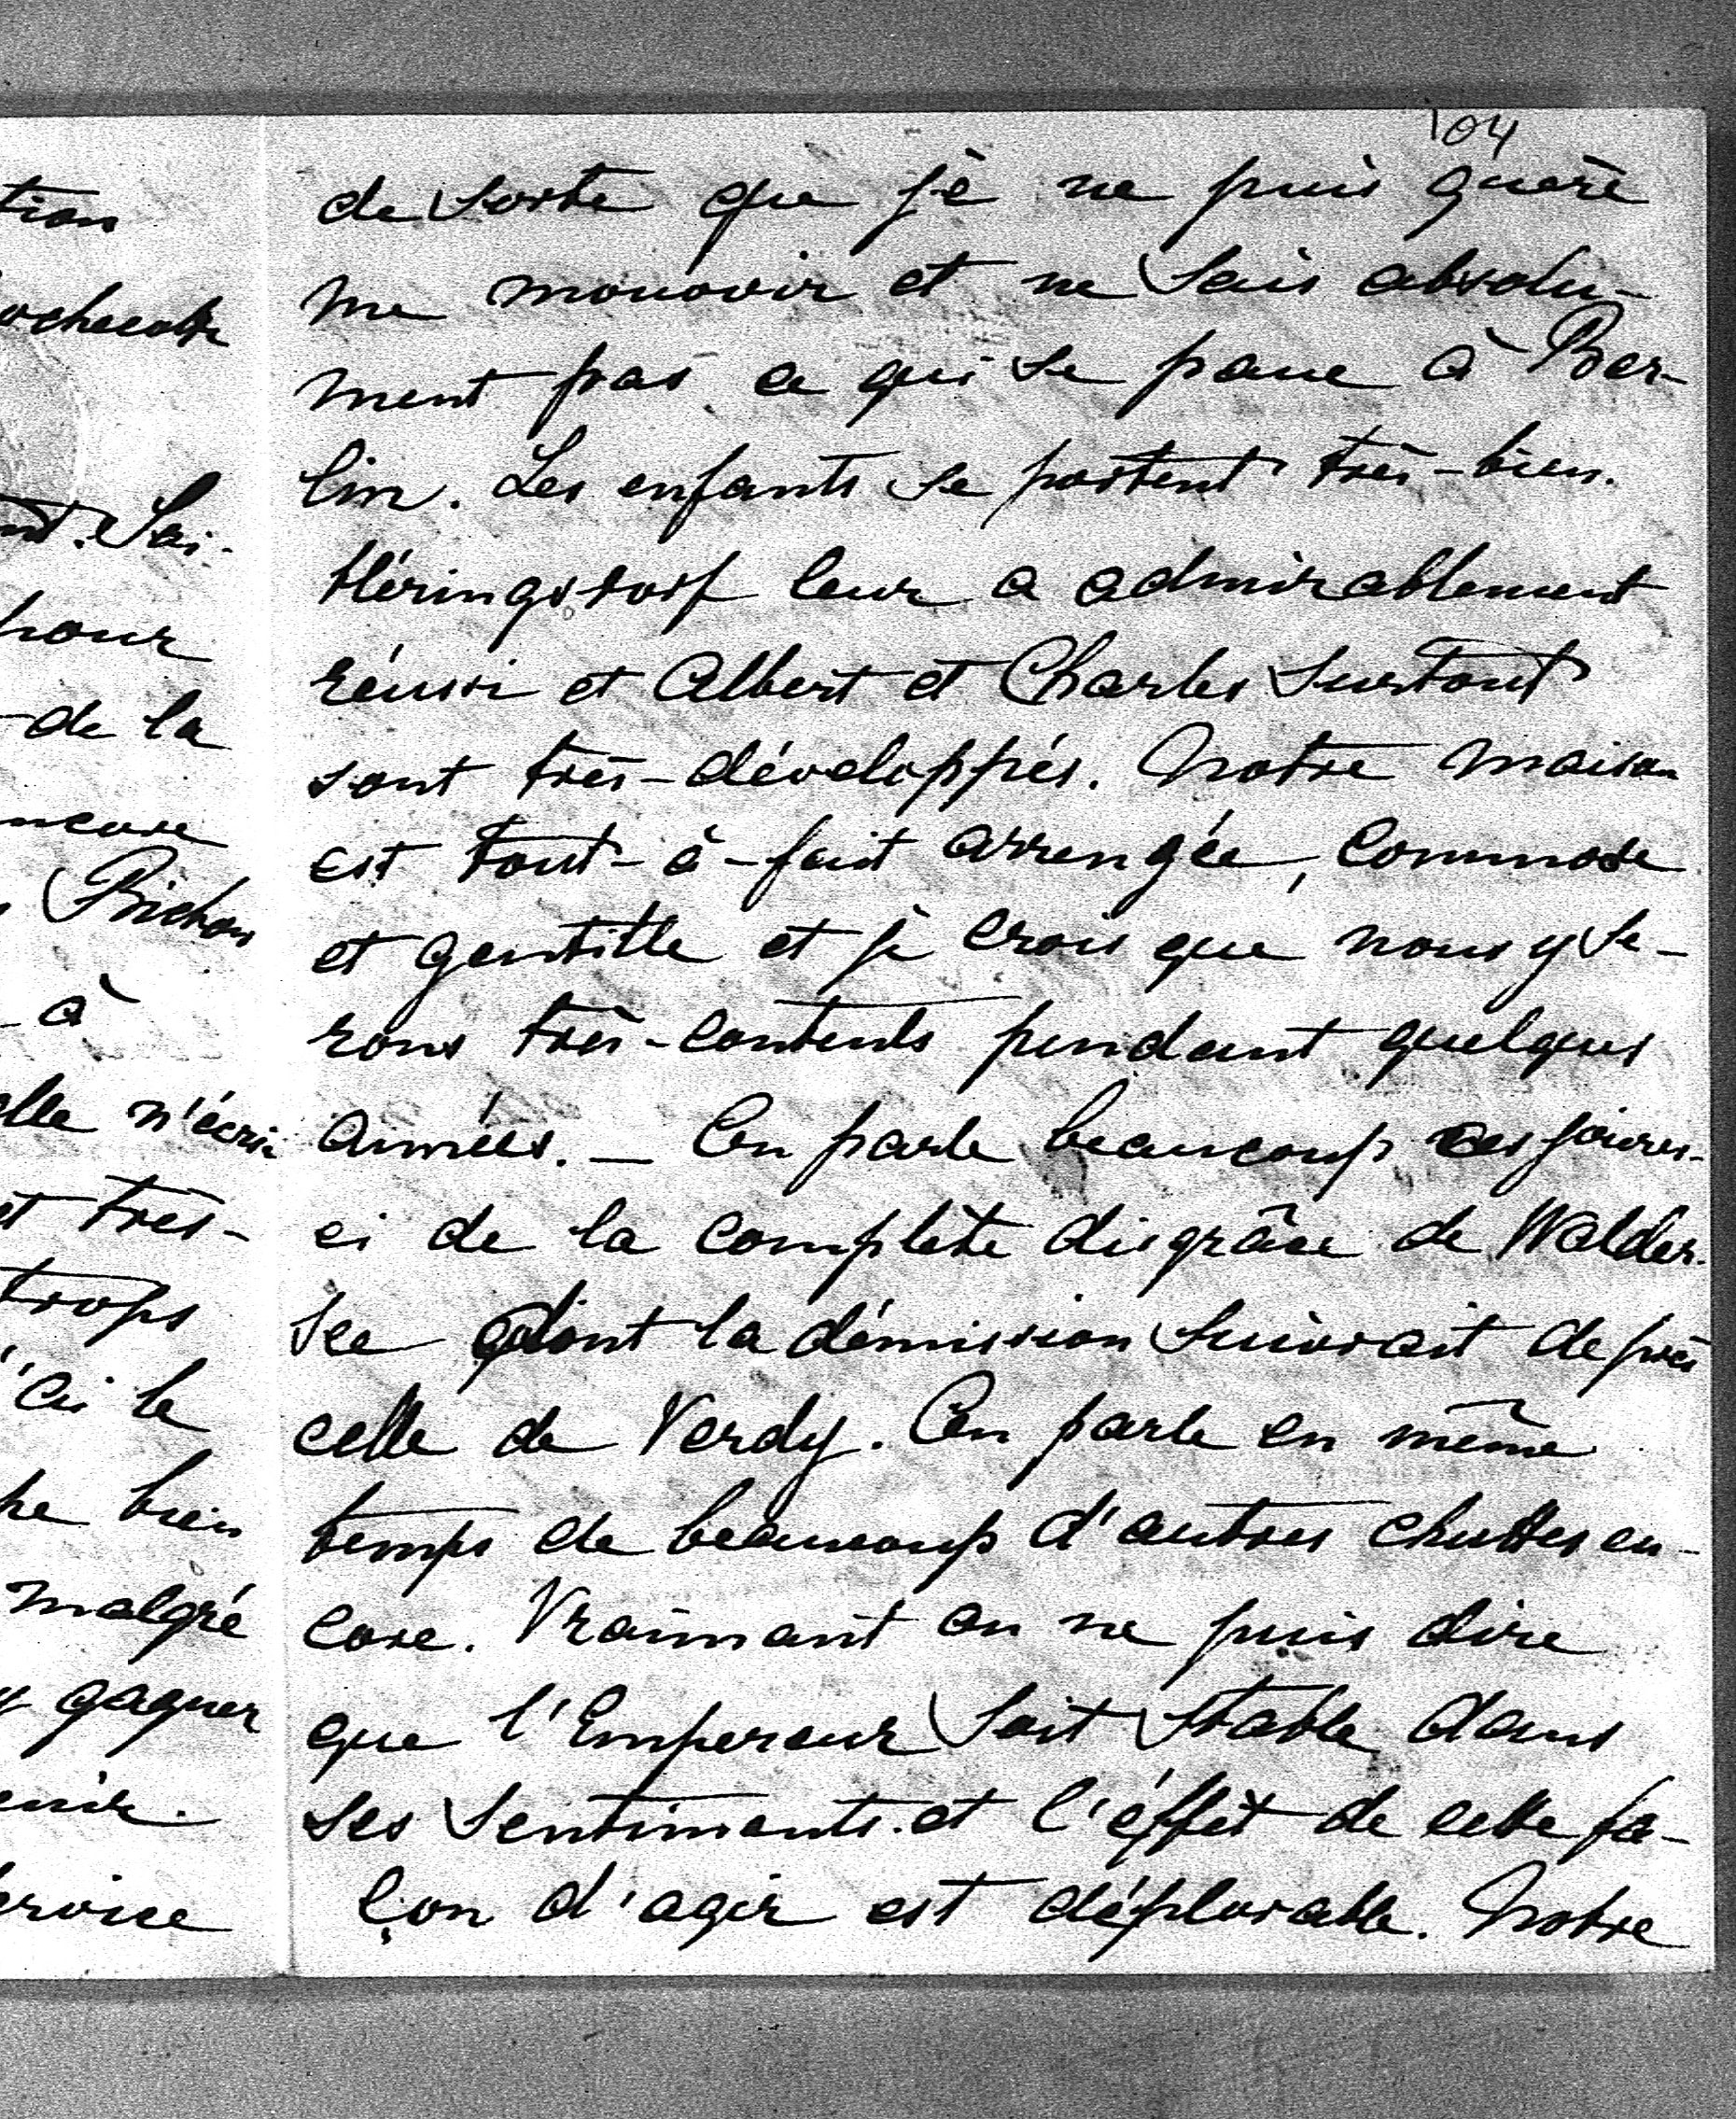 104
de sorte que je ne puis guère
me mouvoir et ne sais absolu-
ment pas ce qui se passe à Ber-
lin. Les enfants se portent très-bien.
Héringsdorf leur a admirablement
réussi et Albert et Charles surtout
sont très-développés. Notre maison
est tout-à-fait arrengée, commode
et gentille et je crois que nous y se-
rons très-contents pendant quelques
années. — On parle beaucoup ces jours-
ci de la complète disgrâce de Walder-
see dont la démission suivrait de près
celle de Verdy. On parle en même
temps de beaucoup d'autres chuttes en-
core. Vraimant on ne puis dire
que l'Empereur soit stable dans
ses sentiments et l'éffèt de cette fa-
çon d'agir est déplorable. Notre
tion
nt. Sai-
pour
de la
ncore
Bichon
à
elle n'écri
et très-
trops
'ai le
he bien
malgré
y gagner
enir.
ervice